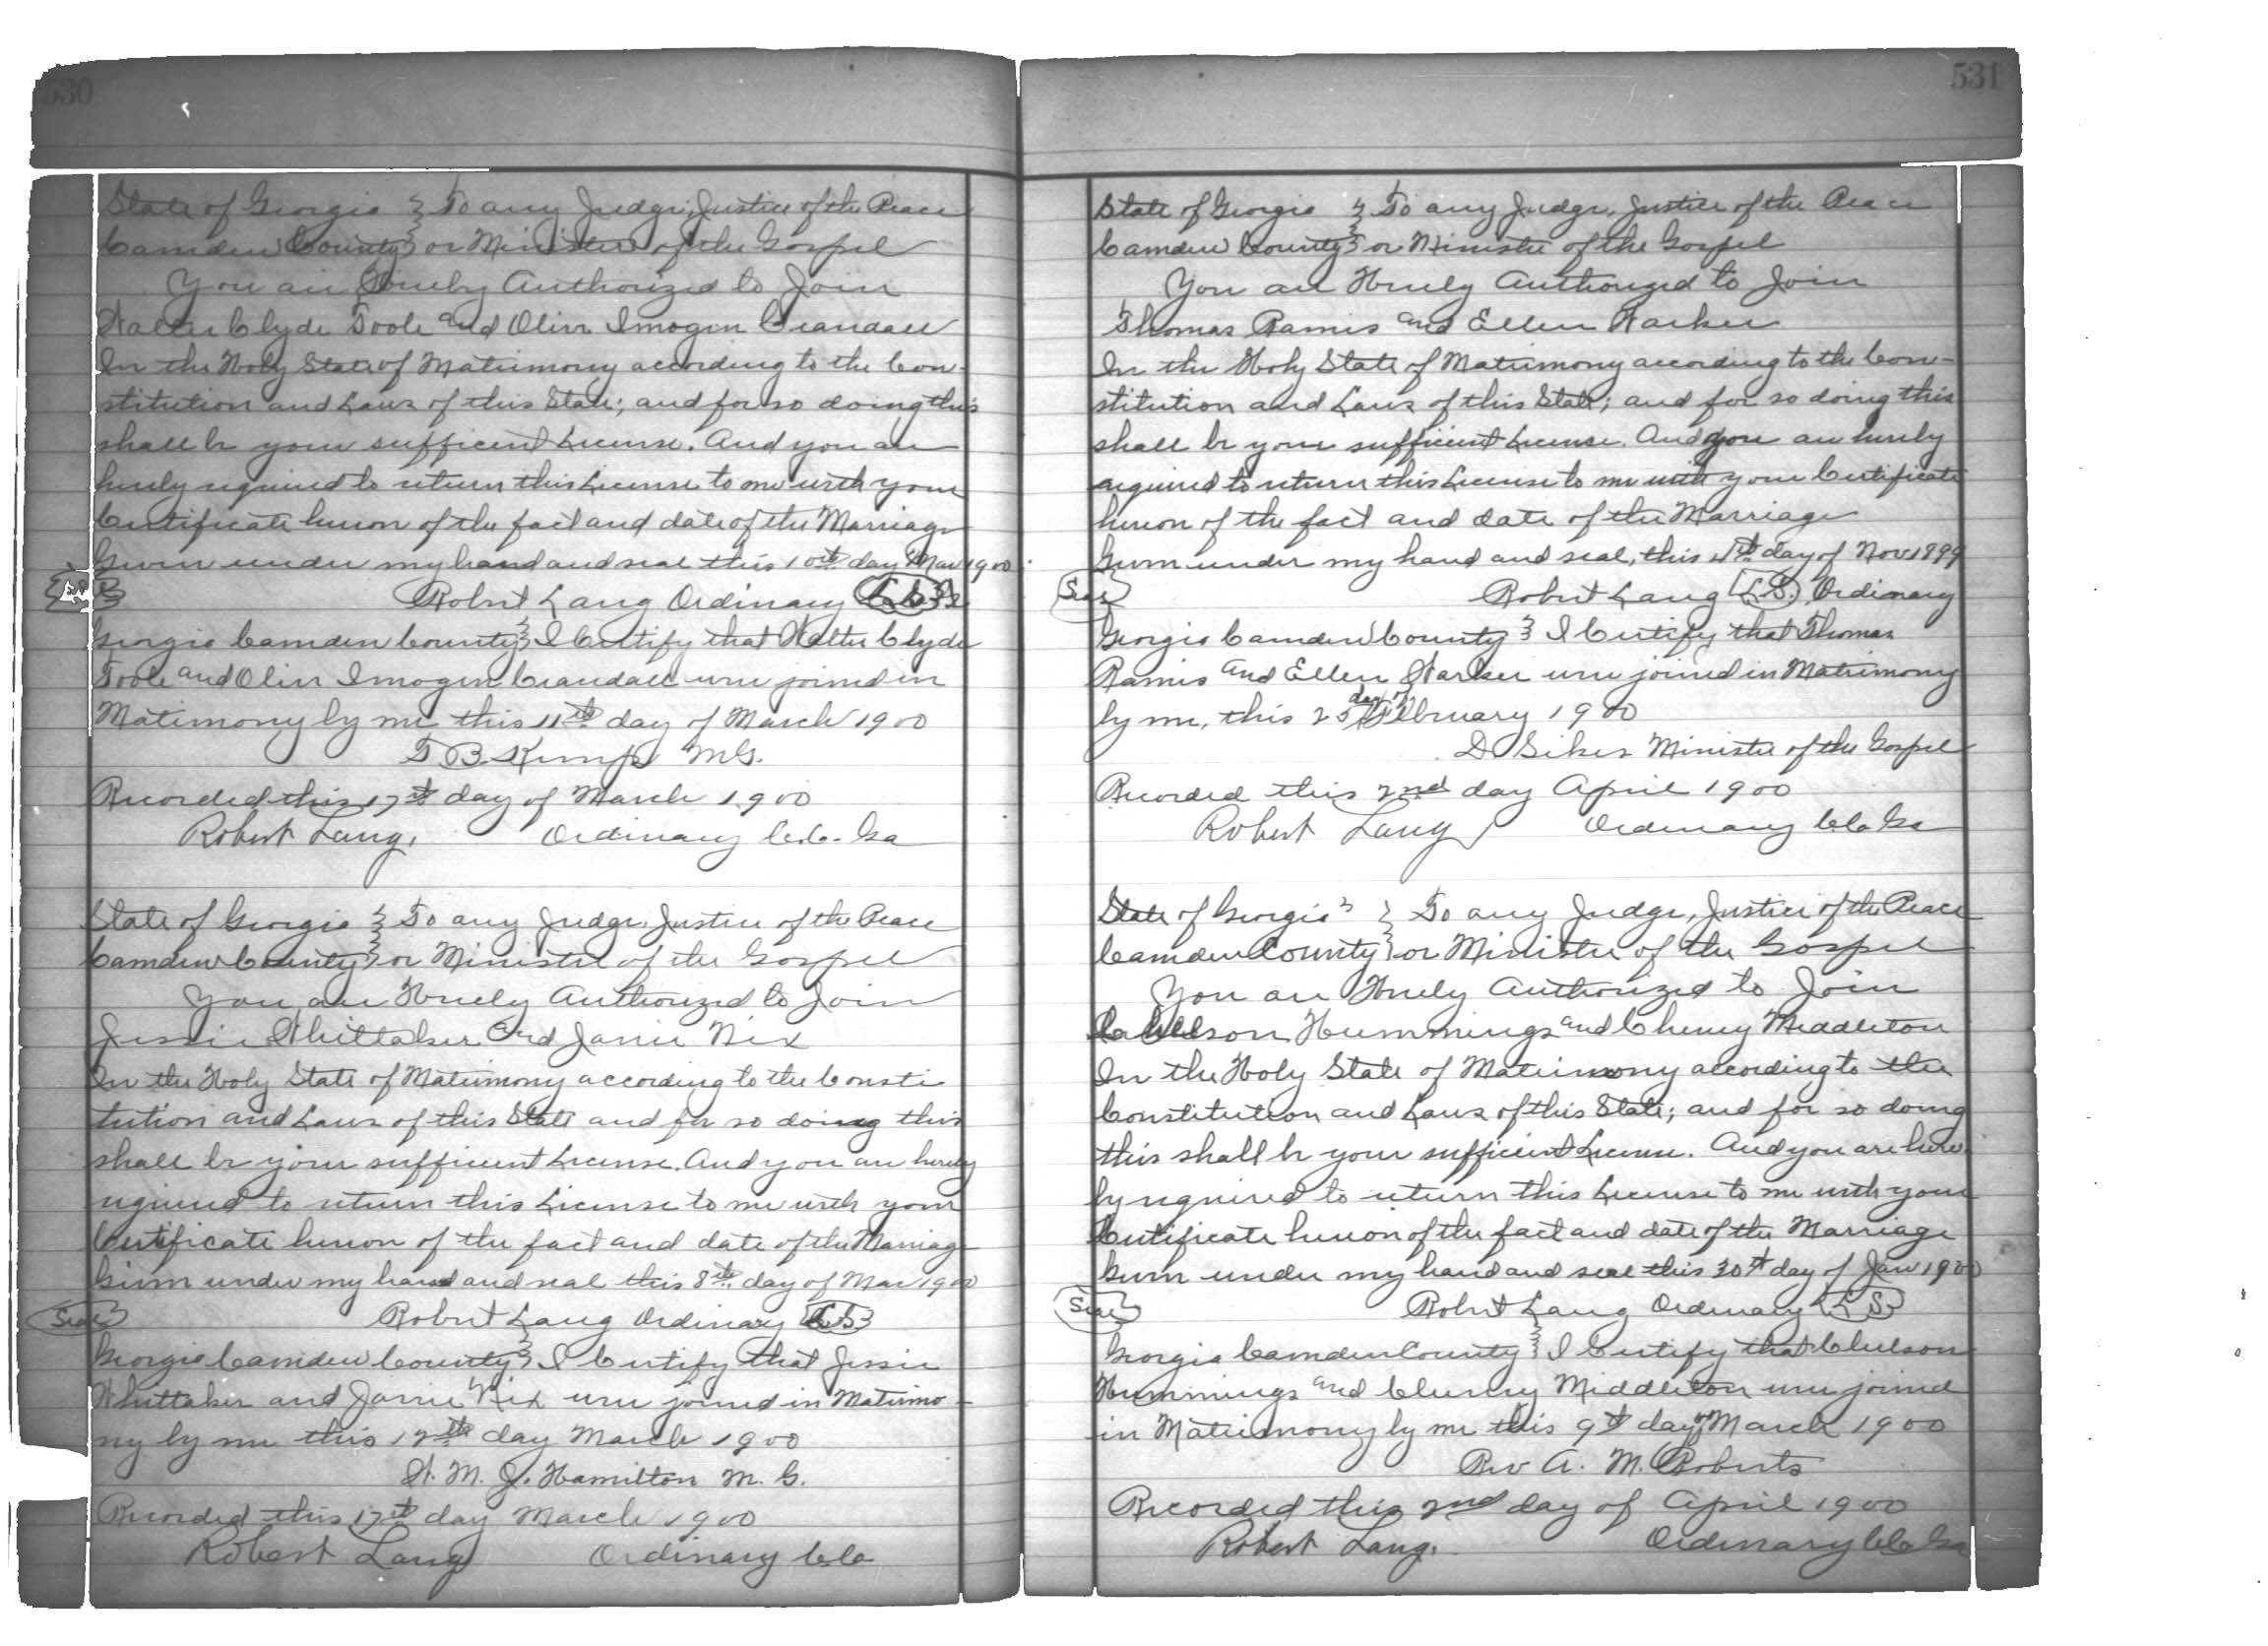 530
State of Georgia } To any Judge, Justice of the Peace
Camden County } or Minister of the Gospel
You are Hereby Authorized to Join
Walter Clyde Toole and Olive Imogen Crandall
In the Holy State of Matrimony according to the Con-
stitution and Laws of this State; and for so doing this
shall be your sufficient License. And you are
hereby required to return this License to me with your
Certificate hereon of the fact and date of the Marriage
Given under my hand and seal this 10th day Mar 1900
Robert Lang Ordinary L.S.
Georgia Camden County } I Certify that Walter Clyde
Toole and Olive Imogen Crandall were joined in
Matimony by me this 11th day of March 1900
T B. Kemp M.G.
Recorded this 17th day of March 1900
Robert Lang, Ordinary C.C. Ga
State of Georgia } To any Judge, Justice of the Peace
Camden County } or Minister of the Gospel
You are Hereby Authorized to Join
Jessie Whittaker and Janie Nix
In the Holy State of Matrimony according to the Consti
tution and Laws of this State and for so doing this
shall be your sufficient License. And you are hereby
required to return this License to me with your
Certificate hereon of the fact and date of the Marriage
Given under my hand and seal this 8th day of Mar 1900
Seal Robert Lang Ordinary L.S.
Georgia Camden County } I Certify that Jessie
Whittaker and Janie Nix were joined in Matrimo-
ny by me this 12th day March 1900
W. M. J. Hamilton M. G.
Recorded this 17th day March 1900
Robert Lang Ordinary C.Co
531
State of Georgia } To any Judge, Justice of the Peace
Camden County } or Minister of the Gospel
You are Hereby Authorized to Join
Thomas Ramis and Ellen Harker
In the Holy State of Matrimony according to the Con-
stitution and Laws of this State; and for so doing this
shall be your sufficient License. And you are hereby
required to return this License to me with your Certificate
hereon of the fact and date of the Marriage
Given under my hand and seal, this day of Nov 1899
Seal Robert Lang L.S. Ordinary
Georgia Camden County } I Certify that Thomas
Ramis and Ellen Harker were joined in Matrimony
by me, this 25 day of February 1900
D Sikes Minister of the Gospel
Recorded this 2nd day April 1900
Robert Lang Ordinary C.Co Ga
State of Georgia } To any Judge, Justice of the Peace
Camden County } or Minister of the Gospel
You are Hereby Authorized to Join
Hummings and Cherry Middleton
In the Holy State of Matrimony according to the
Constitution and Laws of this State; and for so doing
this shall be your sufficient License. And you are here
by required to return this License to me with your
Certificate hereon of the fact and date of the Marriage
Given under my hand and seal this 30th day of Jan 1900
Seal Robert Lang Ordinary L S
Georgia Camden County } I Certify that
Hummings and Cherry Middleton were joined
in Matrimony by me this 9th day of March 1900
Rev A. M. Roberts
Recorded this 2nd day of April 1900
Robert Lang. Ordinary C.Co Ga